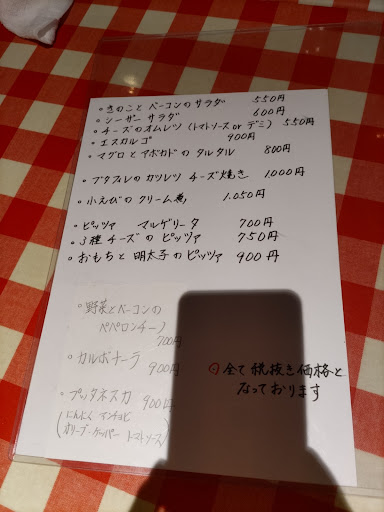 ・きのことベーコンのサラダ 550円
・シーザーサラダ 600円
・チーズのオムレツ(トマトソース or デミ) 550円
・エスカルゴ 900円
・マグロとアボカドのタルタル 800円
・ブタフィレのカツレツ チーズ焼き 1000円
・小えびのクリーム煮 1.050円
・ピッツァ マルゲリータ 700円
・3種チーズのピッツァ 750円
・おもちと明太子のピッツァ 900円
・野菜とベーコンの
ペペロンチーノ
700円
・カルボナーラ 900円
・プッタネスカ 900円
(にんにく アンチョビ
オリーブ・ケッパー トマトソース)
全て税抜き価格と
なっております